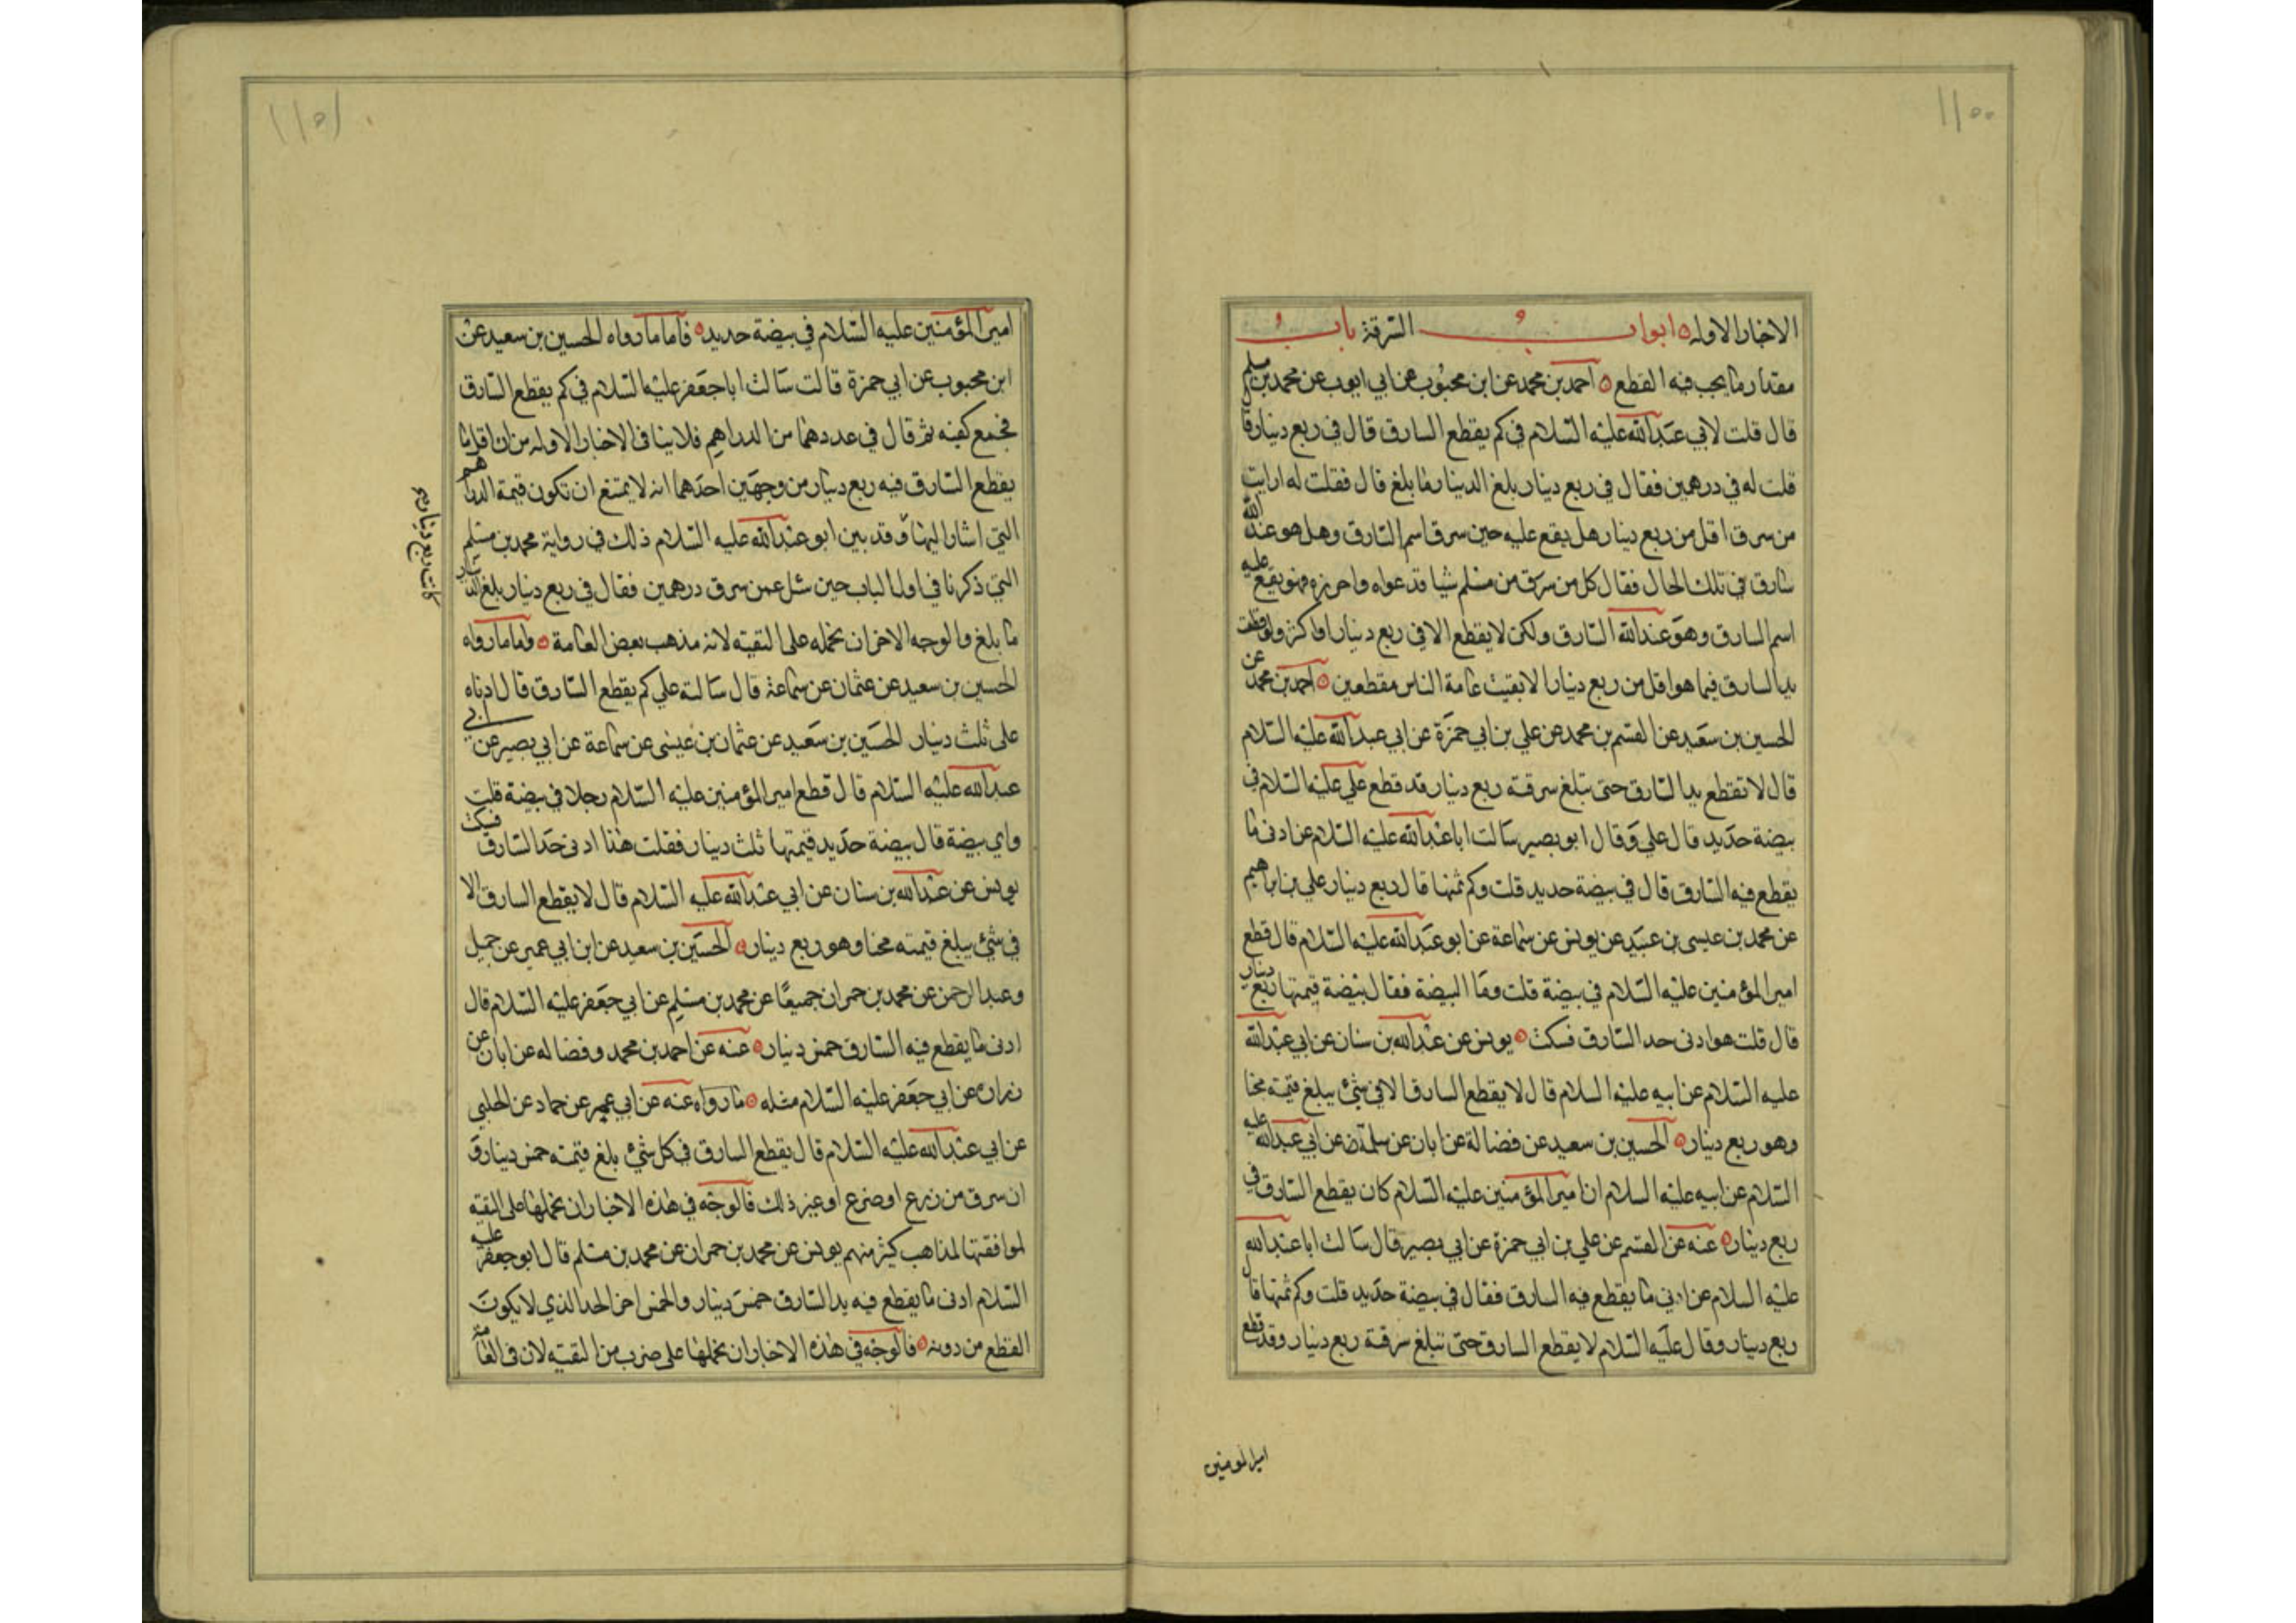 ١١٥٠
الاخبار الاوله ابواب السرقة باب
مقدار ما يجب فيه القطع احمد بن محمد عن ابن محبوب عن ابي ايوب عن محمد بن مسلم
قال قلت لابي عبد الله عليه السلام في كم يقطع السارق قال في ربع دينار قا
قلت له في درهمين فقال في ربع دينار بلغ الدينار ما بلغ قال فقلت له ارايت
من سرق اقل من ربع دينار هل يقع عليه حين سرق اسم السارق وهل هو عند الله
سارق في تلك الحال فقال كل من سرق من مسلم شيا قد عواه واحرزه فهو يقع عليه
اسم السارق وهو عند الله السارق ولكن لا يقطع الا في ربع دينار او اكثر ولو قطعت
يد السارق فيما هو اقل من ربع دينار الابقيت عامة الناس مقطعين احمد بن محمد عن
الحسين بن سعيد عن القسم بن محمد عن علي بن ابي حمزة عن ابي عبد الله عليه السلام
قال لا تقطع يد السارق حتى تبلغ سرقته ربع دينار قد قطع علي عليه السلام في
بيضة حديد قال علي وقال ابو بصير سالت ابا عبد الله عليه السلام عن ادنى ما
يقطع فيه السارق قال في بيضة حديد قلت وكم ثمنها قال ربع دينار علي بن ابراهيم
عن محمد بن عيسى بن عبيد عن يونس عن سماعة عن ابو عبد الله عليه السلام قال قطع
امير المؤمنين عليه السلام في بيضة قلت وما البيضة فقال بيضة قيمتها ربع دينار
قال قلت هو ادنى حد السارق فسكت يونس عن عبد الله بن سنان عن ابي عبد الله
عليه السلام عن ابيه عليه السلام قال لا يقطع السارق الا في شئ يبلغ قيمته مجنا
وهو ربع دينار الحسين بن سعيد عن فضالة عن ابان عن سلمة عن ابي عبد الله عليه
السلام عن ابيه عليه السلام ان امير المؤمنين عليه السلام كان يقطع السارق في
ربع دينار عنه عن القسم عن علي بن ابي حمزة عن ابي بصير قال سالت ابا عبد الله
عليه السلام عن ادنى ما يقطع فيه السارق فقال في بيضة حديد قلت وكم ثمنها قال
ربع دينار وقال عليه السلام لا يقطع السارق حتى تبلغ سرقة ربع دينار وقد قطع
امير المومنين
١١٥١
امير المؤمنين عليه السلام في بيضة حديد فاما ما رواه الحسين بن سعيد عن
ابن محبوب عن ابي حمزة قالت سالت ابا جعفر عليه السلام في كم يقطع السارق
فجمع كفيه ثم قال في عددهما من الدراهم فلا ينافى الاخبار الاوله من ان اقل ما
يقطع السارق فيه ربع دينار من وجهين احدهما انه لا يمتنع ان تكون قيمة الدراهم
التي اشار اليها وقد بين ابو عبد الله عليه السلام ذلك في رواية محمد بن مسلم
كانت ربع دينار
التي ذكرنا في اول الباب حين سئل عمن سرق درهمين فقال في ربع دينار بلغ الدينار
ما بلغ والوجه الاخر ان نحمله على التقيته لانه مذهب بعض العامة واما ما رواه
الحسين بن سعيد عن عثمان عن سماعة قال سالته علي كم يقطع السارق قال ادناه
على ثلث دينار الحسين بن سعيد عن عثمان بن عيسى عن سماعة عن ابي بصير عن ابي
عبد الله عليه السلام قال قطع امير المؤمنين عليه السلام رجلا في بيضة قلت
واي بيضة قال بيضة حديد قيمتها ثلث دينار فقلت هذا ادنى حد السارق فسكت
يونس عن عبد الله بن سنان عن ابي عبد الله عليه السلام قال لا يقطع السارق الا
في شئ يبلغ قيمته مجنا وهو ربع دينار الحسين بن سعيد عن ابن ابي عمير عن جميل
وعبد الرحمن عن محمد بن حمران جميعا عن محمد بن مسلم عن ابي جعفر عليه السلام قال
ادنى ما يقطع فيه السارق خمس دينار عنه عن احمد بن محمد وفضاله عن ابان عن
زرارة عن ابي جعفر عليه السلام مثله ما رواه عنه عن ابي عمير عن حماد عن الحلبي
عن ابي عبد الله عليه السلام قال يقطع السارق في كل شئ بلغ قيمته خمس دينار و
ان سرق من زرع او ضرع او غير ذلك فالوجه في هذه الاخبار ان نحملها على التقيه
لموافقتها لمذاهب كثير منهم يونس عن محمد بن حمران عن محمد بن مسلم قال ابو جعفر عليه
السلام ادنى ما يقطع فيه يد السارق خمس دينار والخمس اخر الحد الذي لا يكون
القطع من دونه فالوجه في هذه الاخبار ان نحملها على ضرب من التقيته لان في العامة